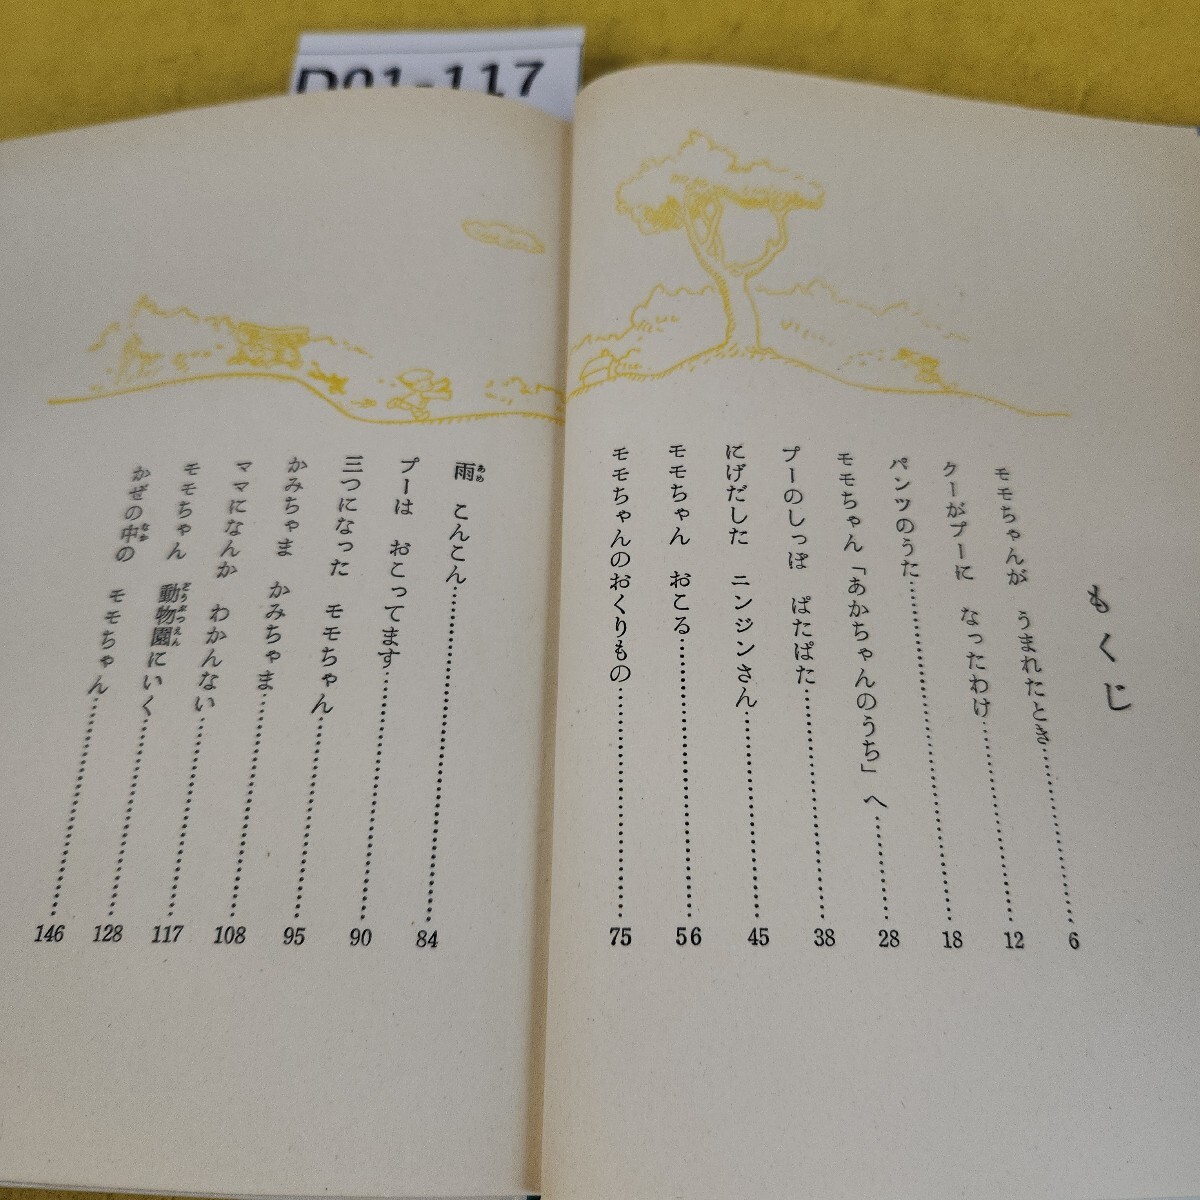 D01-117
もくじ
モモちゃんが うまれたとき…………6
クーがプーに なったわけ…………12
パンツのうた…………18
モモちゃん「あかちゃんのうち」へ…………28
プーのしっぽ ぱたぱた…………38
にげだした ニンジンさん…………45
モモちゃん おこる…………56
モモちゃんのおくりもの…………75
雨 こんこん…………84
プーは おこってます…………90
三つになった モモちゃん…………95
かみちゃま かみちゃま…………108
ママになんか わかんない…………117
モモちゃん 動物園にいく…………128
かぜの中の モモちゃん…………146